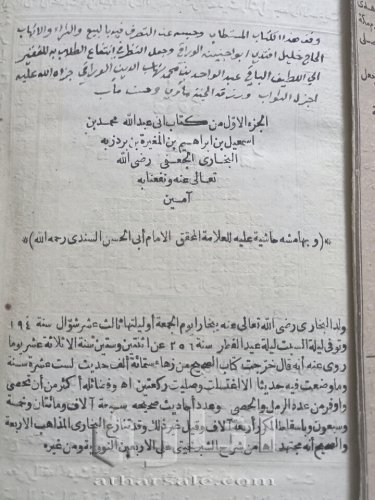 وقف هذا الكتاب المستطاب وحبسه عند التصرف فيه بالبيع والشراء والانهاب
الحاج خليل افندي ابو اجبين الوراق وجعل النظر في انتفاع الطلاب به للفقير
الى اللطيف الباقي عبد الواحد بن محمد الدين الوراقي جزاه الله عليه
اجزل الثواب ورزقه الجنة مآب وحسن مآب
الجزء الاول من كتاب ابى عبد الله محمد بن
اسمعيل بن ابراهيم بن المغيرة بن بردزبه
البخارى الجعفى رضى الله
تعالى عنه ونفعنا به
آمين
*(وبهامشه حاشية عليه للعلامة المحقق الامام أبى الحسن السندى رحمه الله)*
ولد البخارى رضى الله تعالى عنه ببخارا يوم الجمعة أوليلتها ثالث عشر شوال سنة ١٩٤
وتوفى ليلة السبت ليلة عيد الفطر سنة ٢٥٦ عن اثنتين وستين سنة الاثلاثة عشر يوما
روى عنه أنه قال خرجت كتاب الصحيح من زهاء ستمائة ألف حديث لست عشرة سنة
وماوضعت فيه حديثا الا اغتسلت وصليت ركعتين اه وفضائله أكثر من أن تحصى
وأوفر من عدد الرمل والحصى وعدد أحاديث صحيحه سبعة آلاف ومائتان وخمسة
وسبعون وباسقاط المكرر أربعة آلاف وقيل غير ذلك وقد تنازع البخارى المذاهب الاربعة
والصحيح أنه مجتهد اه من شرح الشبرخيتى على الاربعين النووية ومن غيره
atharsale.com